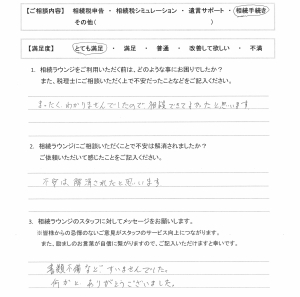 【ご相談内容】 相続税申告 ・ 相続税シミュレーション ・ 遺言サポート ・ 相続手続き
その他( )
【満足度】 とても満足 ・ 満足 ・ 普通 ・ 改善して欲しい ・ 不満
1. 相続ラウンジをご利用いただく前は、どのような事にお困りでしたか?
また、税理士にご相談いただく上で不安だったことなどをご記入ください。
まったくわかりませんでしたので、相談できてよかったと思います
2. 相続ラウンジにご相談いただくことで不安は解消されましたか?
ご依頼いただいて感じたことをご記入ください。
不安は、解消されたと思います
3. 相続ラウンジのスタッフに対してメッセージをお願いします。
※皆様からの忌憚のないご意見がスタッフのサービス向上につながります。
また、励ましのお言葉が自信に繋がりますので、ご記入いただけますと幸いです。
書類不備などすいませんでした。
何かと、ありがとうございました。